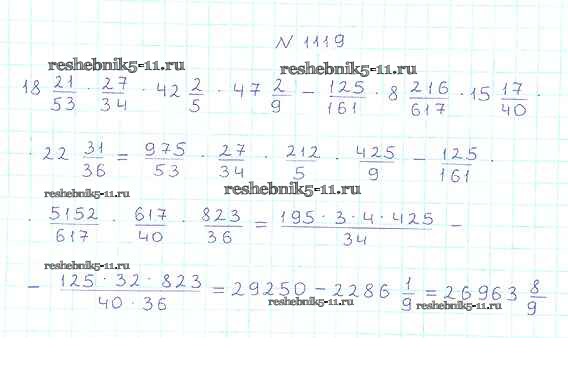 N 1119
reshebnik5-11.ru
reshebnik5-11.ru
18 21/53 · 27/34 · 42 2/5 · 47 2/9 − 125/161 · 8 216/617 · 15 17/40 ·
· 22 31/36 = 975/53 · 27/34 · 212/5 · 425/9 − 125/161 ·
reshebnik5-11.ru
reshebnik5-11.ru
· 5152/617 · 617/40 · 823/36 = 195·3·4·425/34 −
reshebnik5-11.ru
− 125·32·823/40·36 = 29250 − 2286 1/9 = 26963 8/9
reshebnik5-11.ru
reshebnik5-11.ru